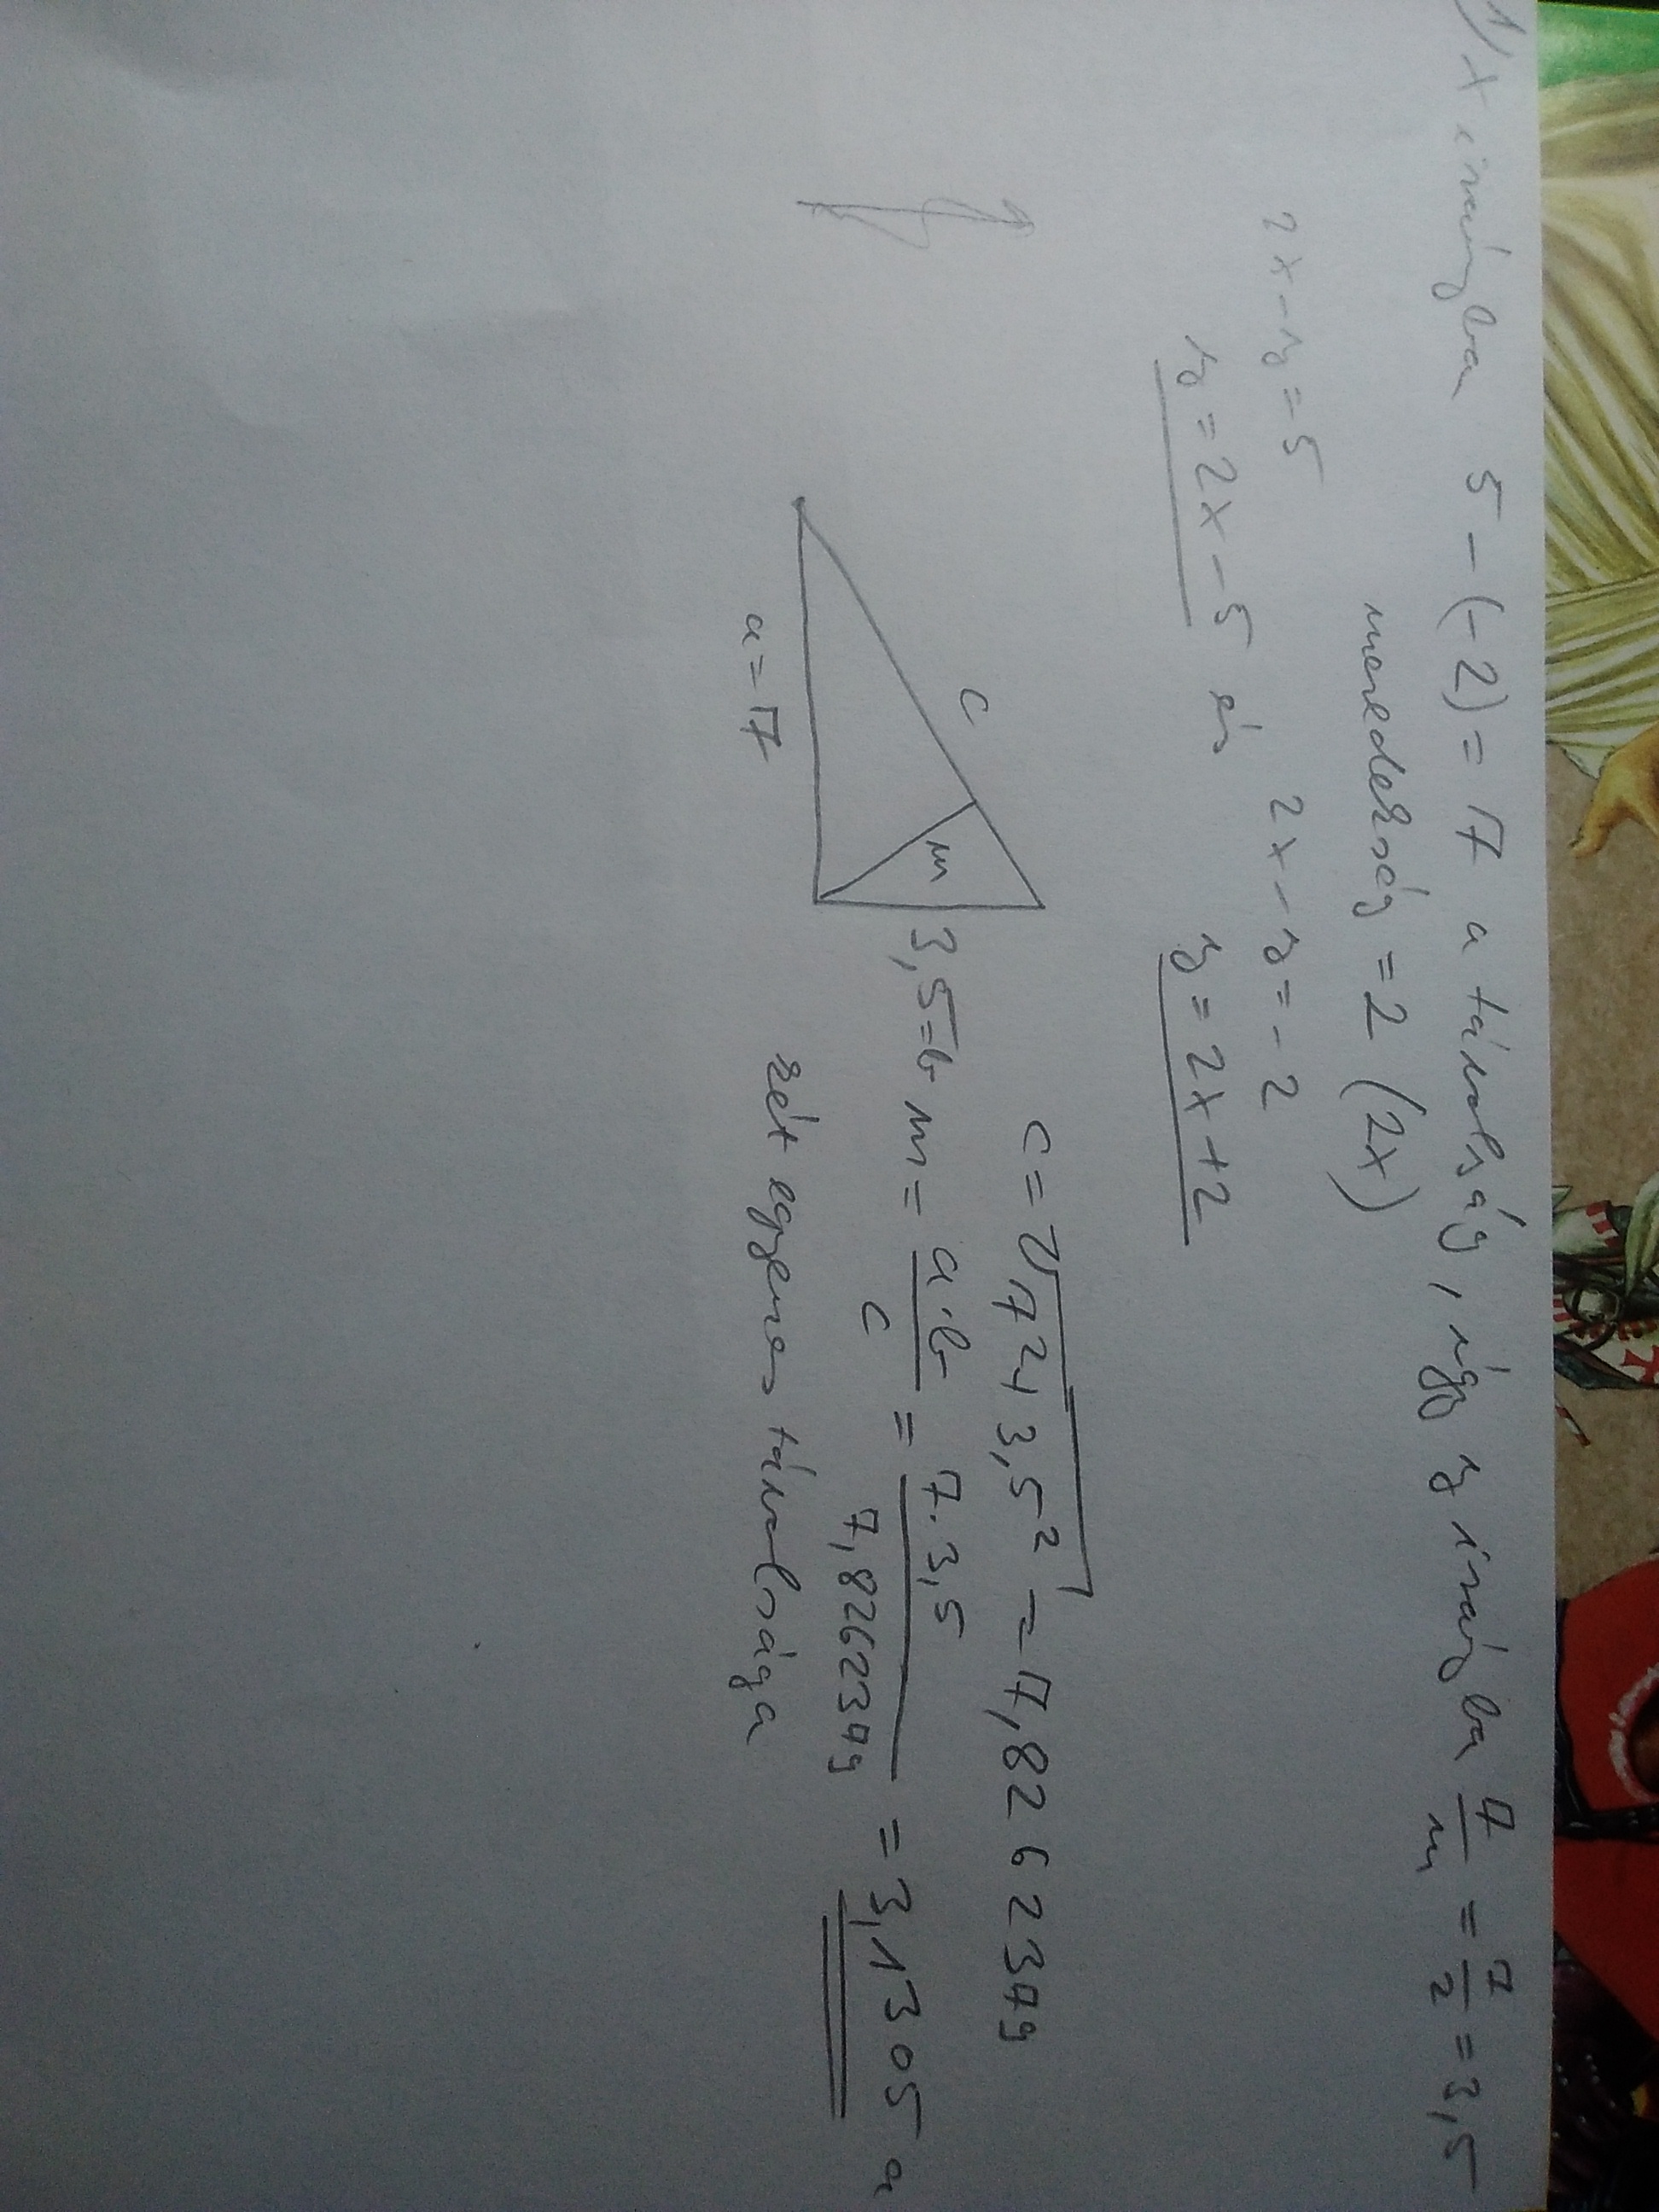 1, x irányba 5-(-2)=7 a távolság, így y irányba 7/m = 7/2 = 3,5
meredekség = 2 (2x)
2x-y=5 2x-y=-2
y=2x-5 és y=2x+2
c=√7²+3,5² = 7,8262379
c
m
3,5=b m = a·b/c = 7·3,5/7,8262379 = 3,1305 a
a=7 két egyenes távolsága